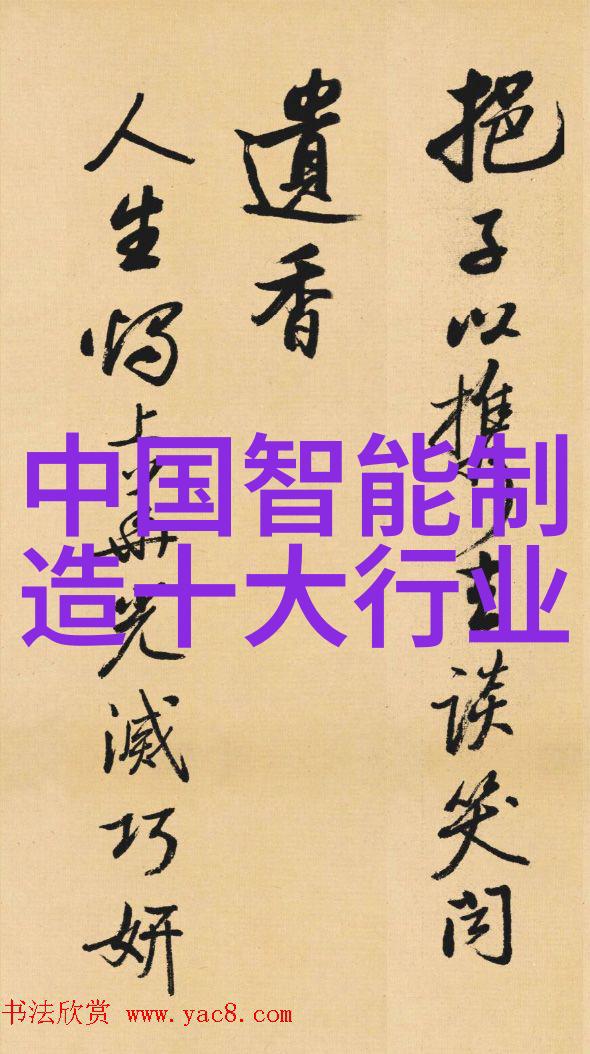 挹子以推談笑间
遺香
人生上光滅巧妍
中国智能制
造十大行业
书法欣赏 www.yac8.com